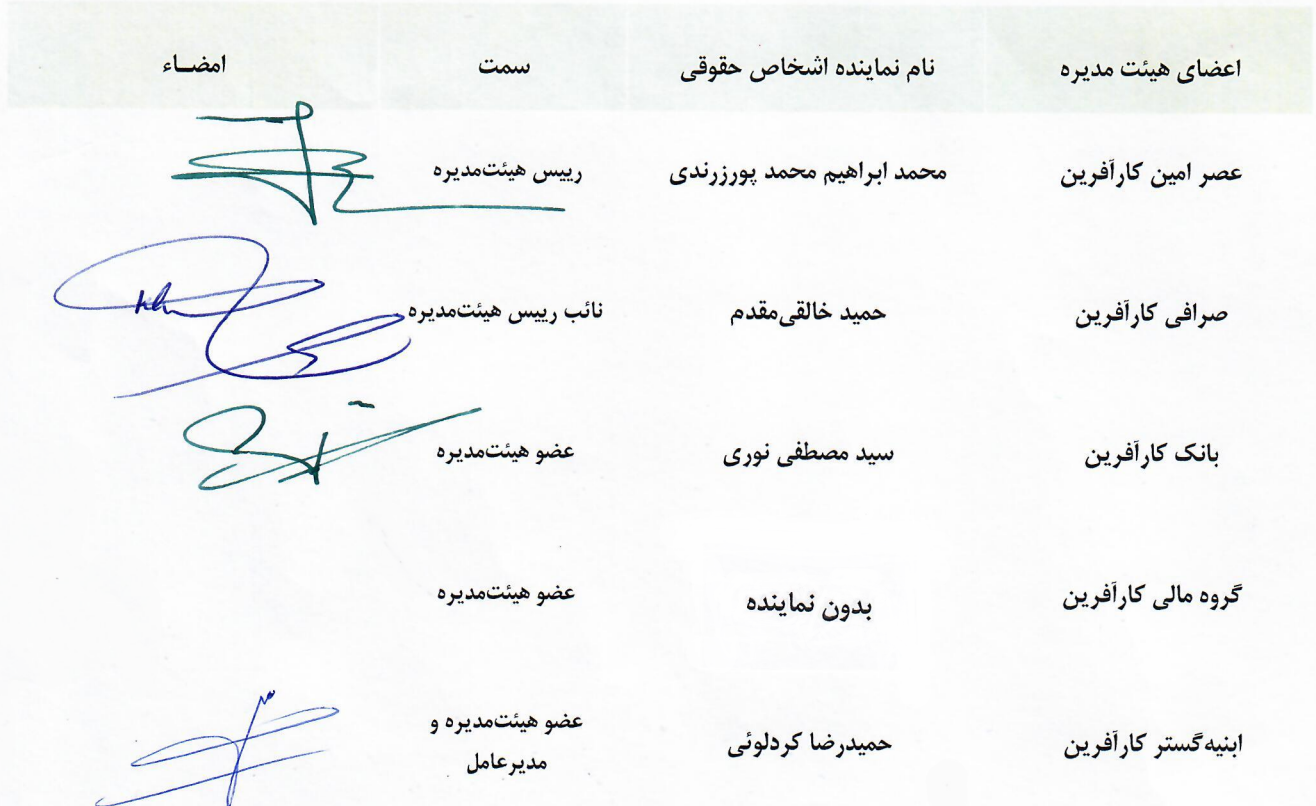 اعضای هیئت مدیره نام نماینده اشخاص حقوقی سمت امضـاء
عصر امین کارآفرین محمد ابراهیم محمد پورزرندی رییس هیئت‌مدیره
صرافی کارآفرین حمید خالقی‌مقدم نائب رییس هیئت‌مدیره
بانک کارآفرین سید مصطفی نوری عضو هیئت‌مدیره
گروه مالی کارآفرین بدون نماینده عضو هیئت‌مدیره
ابنیه‌گستر کارآفرین حمیدرضا کردلوئی عضو هیئت‌مدیره و
مدیرعامل